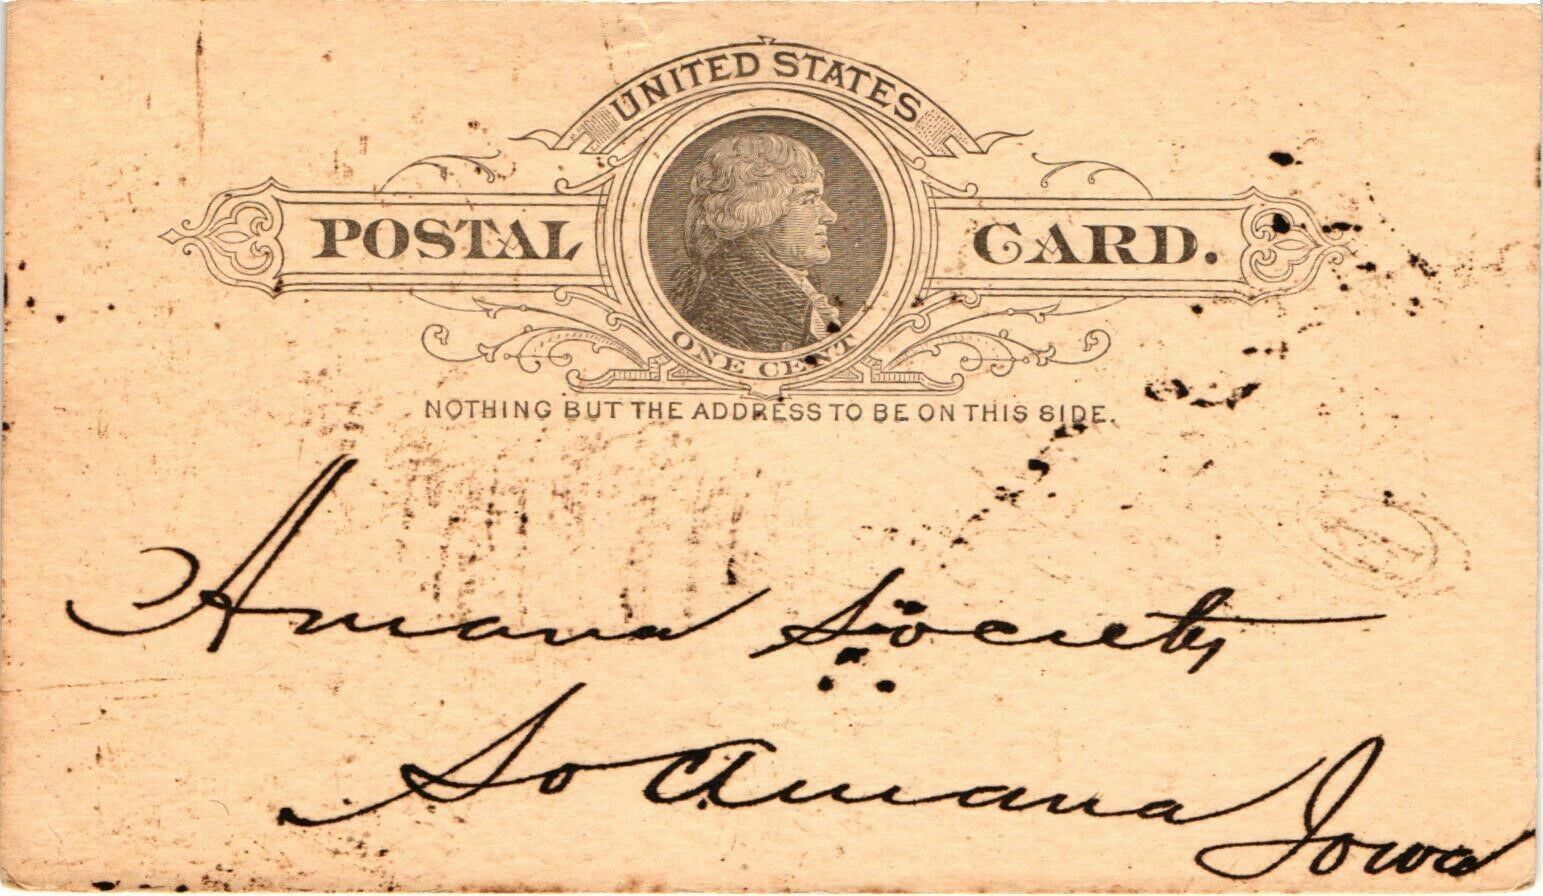 UNITED STATES
POSTAL CARD.
ONE CENT
NOTHING BUT THE ADDRESS TO BE ON THIS SIDE.
Amana Society
So Amana Iowa